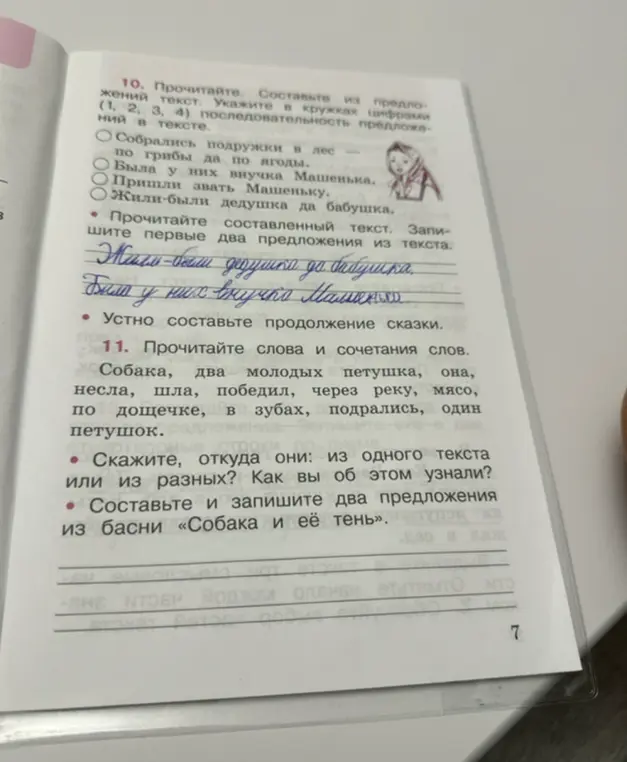 10. Прочитайте. Составьте из предло-
жений текст. Укажите в кружках цифрами
(1, 2, 3, 4) последовательность предложе-
ний в тексте.
Собрались подружки в лес —
по грибы да по ягоды.
Была у них внучка Машенька.
Пришли звать Машеньку.
Жили-были дедушка да бабушка.
• Прочитайте составленный текст. Запи-
шите первые два предложения из текста.
Жили-были дедушка да бабушка.
Была у них внучка Машенька.
• Устно составьте продолжение сказки.
11. Прочитайте слова и сочетания слов.
Собака, два молодых петушка, она,
несла, шла, победил, через реку, мясо,
по дощечке, в зубах, подрались, один
петушок.
• Скажите, откуда они: из одного текста
или из разных? Как вы об этом узнали?
• Составьте и запишите два предложения
из басни «Собака и её тень».
7